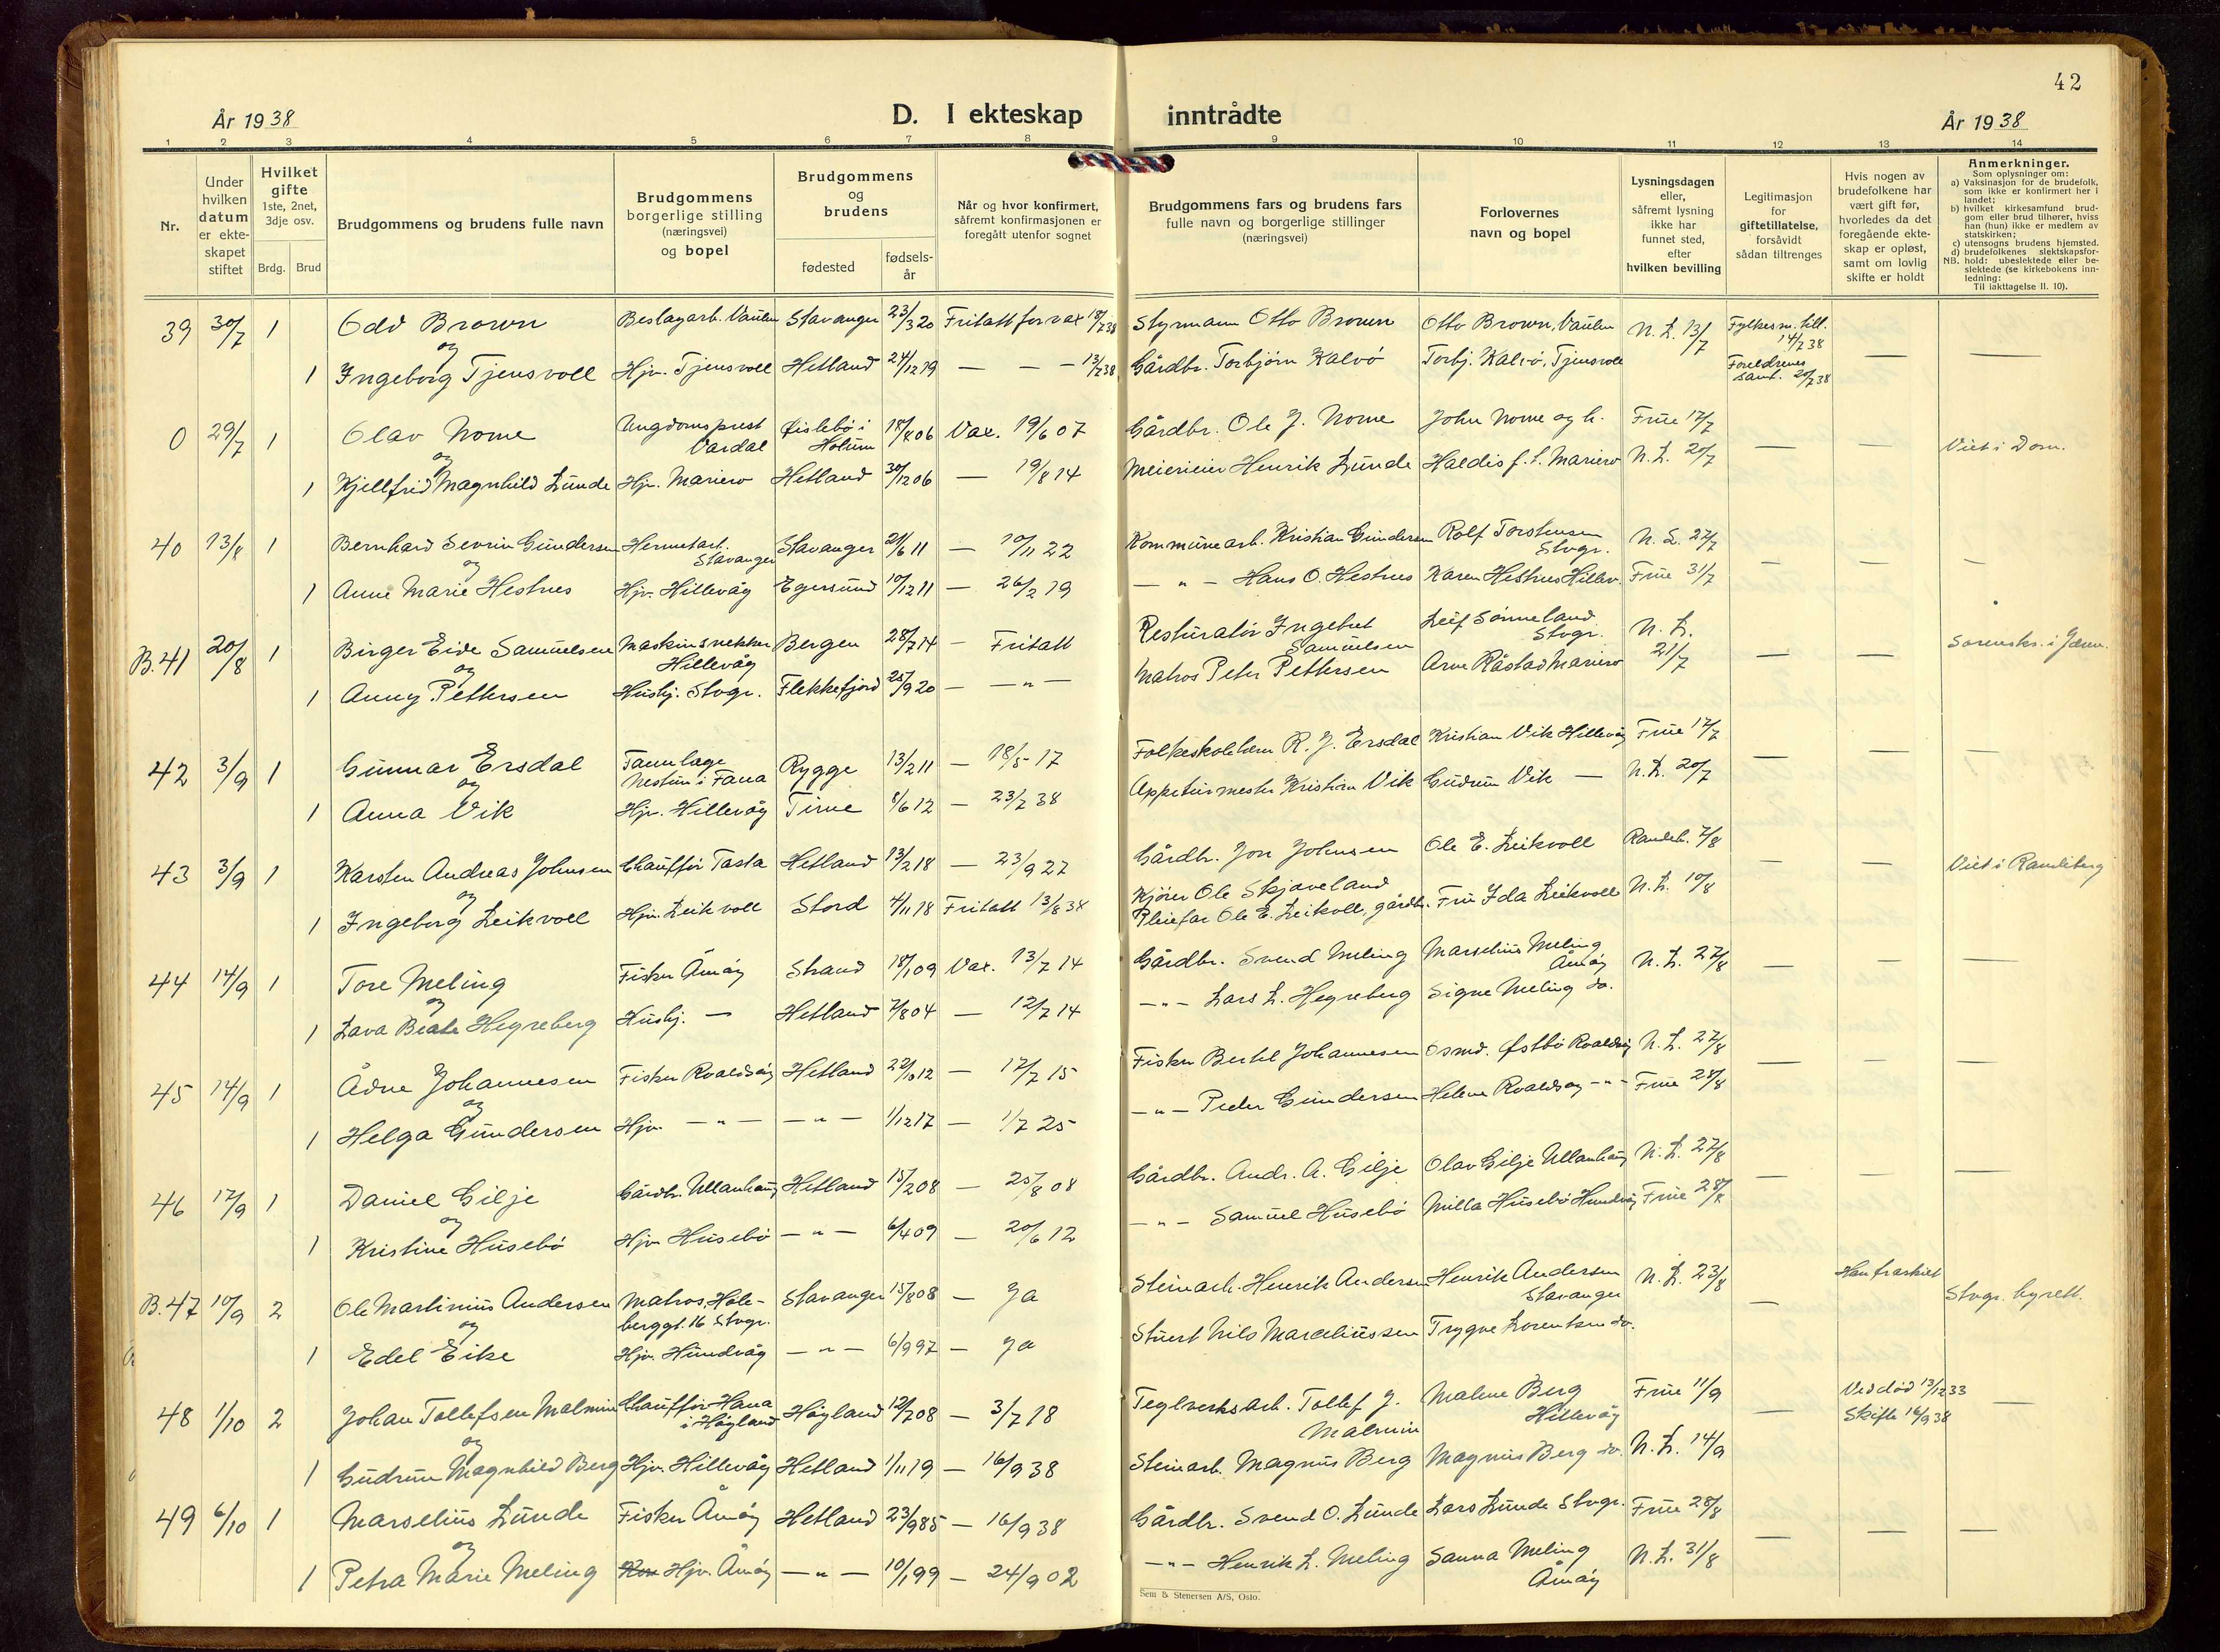 42
År 1938
D. I ekteskap inntrådte
År 1938
1 2 3 4 5 6 7 8 9 10 11 12 13 14
Nr.
Under hvilken datum er ekteskapet stiftet
Hvilket gifte 1ste, 2net, 3dje osv.
Brdg. Brud
Brudgommens og brudens fulle navn
Brudgommens borgerlige stilling (næringsvei) og bopel
Brudgommens og brudens
fødested
fødselsår
Når og hvor konfirmert, såfremt konfirmasjonen er foregått utenfor sognet
Brudgommens fars og brudens fars fulle navn og borgerlige stillinger (næringsvei)
Forlovernes navn og bopel
Lysningsdagen eller, såfremt lysning ikke har funnet sted, efter hvilken bevilling
Legitimasjon for giftetillatelse, forsåvidt sådan tiltrenges
Hvis nogen av brudefolkene har vært gift før, hvorledes da det foregående ekteskap er opløst, samt om lovlig skifte er holdt
Anmerkninger.
Som oplysninger om:
a) Vaksinasjon for de brudefolk, som ikke er konfirmert her i landet;
b) hvilket kirkesamfund brudgom eller brud tilhører, hviss han (hun) ikke er medlem av statskirken;
c) utensogns brudens hjemsted.
d) brudefolkenes slektskapsforhold: ubeslektede eller beslektede (se kirkebokens innledning:
NB.
Til iakttagelse II. 10).
39 30/7 1 Odd Brown Beslagarb. Vaulen Stavanger 23/3 20 Fritatt for vax 18/7 38 Styrmann Otto Brown Otto Brown, Vaulen N. L. 13/7 Fylkesm. till. 14/7 38
og
1 Ingeborg Tjensvoll Hjv. Tjensvoll Hetland 24/12 19 — — — 13/7 38 Gårdbr. Torbjørn Kalvø Torbj. Kalvø, Tjensvoll Foreldrenes samt. 20/7 38 — —
0 29/7 1 Olav Nome Ungdomsprest Vardal Øislebø i Holum 18/8 06 Vax. 19/6 07 Gårdbr. Ole J. Nome John Nome og h. Frue 17/7
og
1 Kjellfrid Magnhild Lunde Hjv. Mariero Hetland 30/12 06 — 19/8 14 Meierieier Henrik Lunde Haldis f. L. Mariero N. L. 20/7 — — Viet i Dom.
40 13/8 1 Bernhard Sevrin Gundersen Hermetarb. Stavanger Stavanger 21/6 11 — 10/11 22 Kommunearb. Kristian Gundersen Rolf Torstensen Stvgr. N. L. 27/7
og
1 Anne Marie Hestnes Hjv. Hillevåg Egersund 10/12 11 — 26/2 19 — " — Hans O. Hestnes Karen Hestnes Hillev. Frue 31/7 — — —
B.41 20/8 1 Birger Eide Samuelsen Maskinsnekker Hillevåg Bergen 28/7 14 — Fritatt Resturatør Ingebret Samuelsen Leif Sønneland Stvgr. N. L. 21/7
og
1 Anny Pettersen Hushj. Stvgr. Flekkefjord 25/9 20 — — " — Matros Peter Pettersen Arne Råstad Mariero — — Sorenskr. i Jæren.
42 3/9 1 Gunnar Ersdal Tannlæge Nestun i Fana Rygge 13/2 11 — 18/5 17 Folkeskolelærer R. J. Ersdal Kristian Vik Hillevåg Frue 17/7
og
1 Anna Vik Hjv. Hillevåg Time 8/6 12 — 23/7 38 Appeturmester Kristian Vik Gudrun Vik — N. L. 20/7 — — —
43 3/9 1 Karsten Andreas Johnsen Chauffør Tasta Hetland 13/2 18 — 23/9 27 Gårdbr. Jon Johnsen Ole E. Leikvoll Randeb. 7/8
og
1 Ingeborg Leikvoll Hjv. Leikvoll Stord 4/11 18 Fritatt 13/8 38 Kjører Ole Skjaveland Pleiefar Ole E. Leikvoll, gårdbr. Fru Ida Leikvoll N. L. 10/8 — — Viet i Randeberg
44 14/9 1 Tore Meling Fisker Åmøy Strand 18/1 09 Vax. 13/7 14 Gårdbr. Svend Meling Marselius Meling Åmøy N. L. 27/8
og
1 Lava Beate Hegreberg Hushj. — Hetland 7/8 04 — 12/7 14 — " — Lars L. Hegreberg Signe Meling do. — — —
45 14/9 1 Ådne Johannesen Fisker Roaldsøy Hetland 22/10 12 — 17/7 15 Fisker Bertel Johannesen Osmd. Østbø Roaldsøy N. L. 27/8
og
1 Helga Gundersen Hjv. — " — — " — 1/12 17 — 1/7 25 — " — Peder Gundersen Helene Roaldsøy — " — Frue 28/8 — — —
46 17/9 1 Daniel Gilje Gårdbr. Ullanhaug Hetland 15/2 08 — 25/8 08 Gårdbr. Andr. A. Gilje Olav Gilje Ullanhaug N. L. 27/8
og
1 Kristine Husebø Hjv. Husebø — " — 6/4 09 — 20/6 12 — " — Samuel Husebø Milla Husebø Hundvåg Frue 28/8 — — —
B.47 10/9 2 Ole Martinius Andersen Matros, Holeberggt. 16 Stvgr. Stavanger 15/8 08 — Ja Steinarb. Henrik Andersen Henrik Andersen Stavanger N. L. 23/8 — Han fraskilt Stvgr. byrett.
og
1 Edel Eike Hjv. Hundvåg — " — 6/9 97 — Ja Stuert Nils Marceliussen Trygve Lorentsen do.
48 1/10 2 Johan Tollefsen Malmin Chauffør Hana i Høyland Høyland 12/7 08 — 3/7 18 Teglverksarb. Tollef J. Malmin Malene Berg Hillevåg Frue 11/9 — Ved død 13/12 33 Skifte 16/9 38 —
og
1 Gudrun Magnhild Berg Hjv. Hillevåg Hetland 1/11 19 — 16/9 38 Steinarb. Magnus Berg Magnus Berg do. N. L. 14/9
49 6/10 1 Marselius Lunde Fisker Åmøy Hetland 23/9 85 — 16/9 38 Gårdbr. Svend O. Lunde Lars Lunde Stvgr. Frue 28/8
og
1 Petra Marie Meling Hjv. Åmøy — " — 10/1 99 — 24/9 02 — " — Henrik L. Meling Sanna Meling Åmøy N. L. 31/8 — — —
Sem & Stenersen A/S, Oslo.